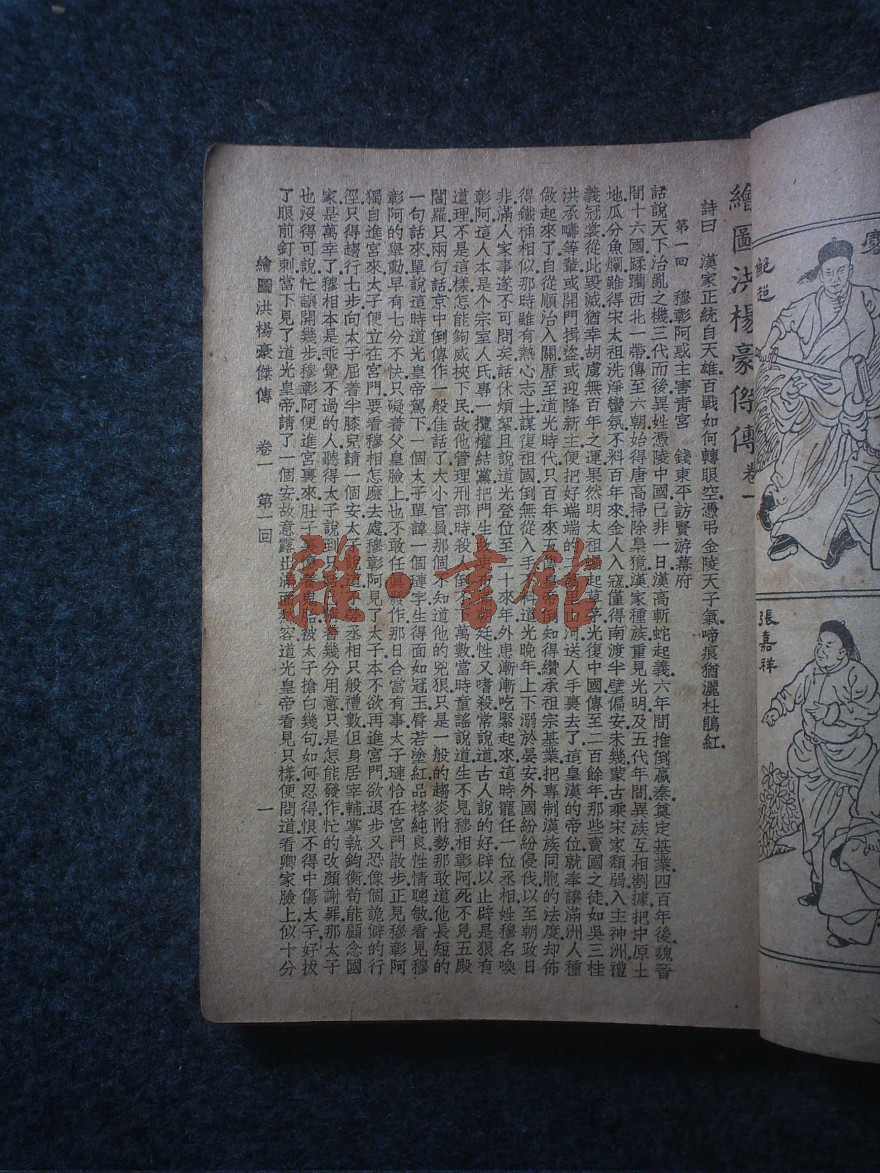 繪圖洪楊豪傑傳 卷一
詩曰 漢家正統自天雄百戰如何轉眼空憑弔金陵天子氣啼痕猶灑杜鵑紅
第一回 穆彰阿惑主害青宮 錢東平訪賢游幕府
話說天下治亂之機三代而後異姓憑陵中國已非一日漢高斬蛇起義六年間推倒嬴秦奠定基業四百年後魏晉
間十六國蹂躪西北一帶傳至六朝始得唐高掃除梟獍漢家種族重見光明及五代年間異族互相割據把中原土
地瓜分魚爛雖得宋太祖洗淨蠻氛不料百年來金人入寇僅得南渡半壁偏安未幾蒙古乘宋家頹弱入主神洲禮
義冠裳從此毀滅猶幸胡虜無百年之運果然明太祖崛起草茅光復中國傳至二百餘年那些賣國之徒如吳三桂
洪承疇等輩或開門揖盜或迎降新主便把好端端的 山河送人手裏去了這皇漢的帝位就奉讓滿洲人種
做起來了自從順治入關歷至道光時代只百年來不 知得纘承祖宗基業把專制漢族同胞的法度却佈
得鐵桶相似那時雖有熱心志士謀復祖國倒無從入手 料道光晚年上下溺於晏安外國紛紛侵伐以至朝政日
非滿人家事遂不可問矣話休煩絮且說道光登位至二十來年外患漸漸吃緊起來這時寵任一位丞相姓穆名喚
彰阿這人本是个宗室人氏專一攬權結黨把門生 朝廷性又嗜殺常說道古人說的好辟以止辟是狠有
道理不是這樣怎能夠威挾下民故他管理刑部時殺 倒 萬數當時童謠說道生不見穆相彰阿死不見五殿
閻羅只兩句話京中倒傳作一般佳話了大小官員那個 知道他的兇狠只是一般的趨炎附勢那敢道他長短的
一句話來單說這時道光皇帝駕下一個太子單諱一個璉字生得面如冠玉脣若塗紅品格純良性情聰敏看見穆
彰阿的舉動早有七分不快只礙着父皇臉上也不敢任 發作那日合當有事太子璉恰在宮門散步正見穆彰阿
獨自進宮來太子便立在宮門要看穆相怎麼去處穆彰阿見了太子本不欲再進宮門欲退步又恐像個詭僻的行
徑只得趨行七步向太子屈着半膝兒請一個安太子 說道 丞相只般禮數但身居宰輔掌執鈞衡苟能顧念國
家是萬幸了穆相本是乖覺不過的人聽得太子說到只 幾分用意只是怎能發作忙的改顏謝罪那太子
也沒得可說忙讓開幾步穆彰阿便進宮裏來肚子 恰被太子搶白幾句如何忍得恨不得中傷太子好拔
了眼前釘刺當下見了道光皇帝請了一個安故意露出滿面 容道光皇帝看見只樣便問道看卿家臉上似十分
繪圖洪楊豪傑傳 卷一 第一回 一
鮑超
張嘉祥
雜·書館